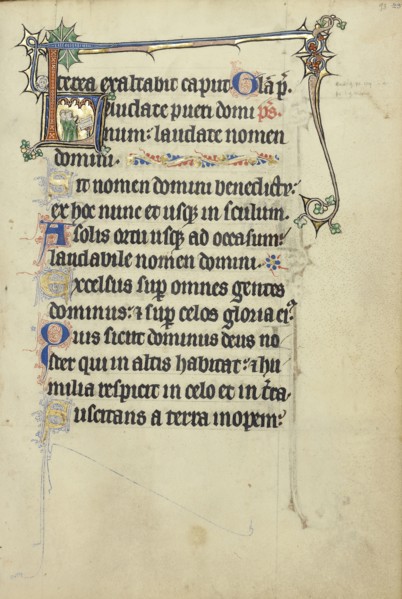 terra exaltabit caput. Gla pr̄.
Laudate pueri domi ps.
num: laudate nomen
domini.
Sit nomen domini benedictꝰ:
ex hoc nunc et usqꝫ in seculum.
A solis ortu usqꝫ ad occasum:
laudabile nomen domini.
Excelsus sup̄ omnes gentes
dominus: ⁊ sup̄ celos gloria eiꝰ.
Quis sicut dominus deus no
ster qui in altis habitat: ⁊ hu
milia respicit in celo et in t̄ra.
Suscitans a terra inopem: